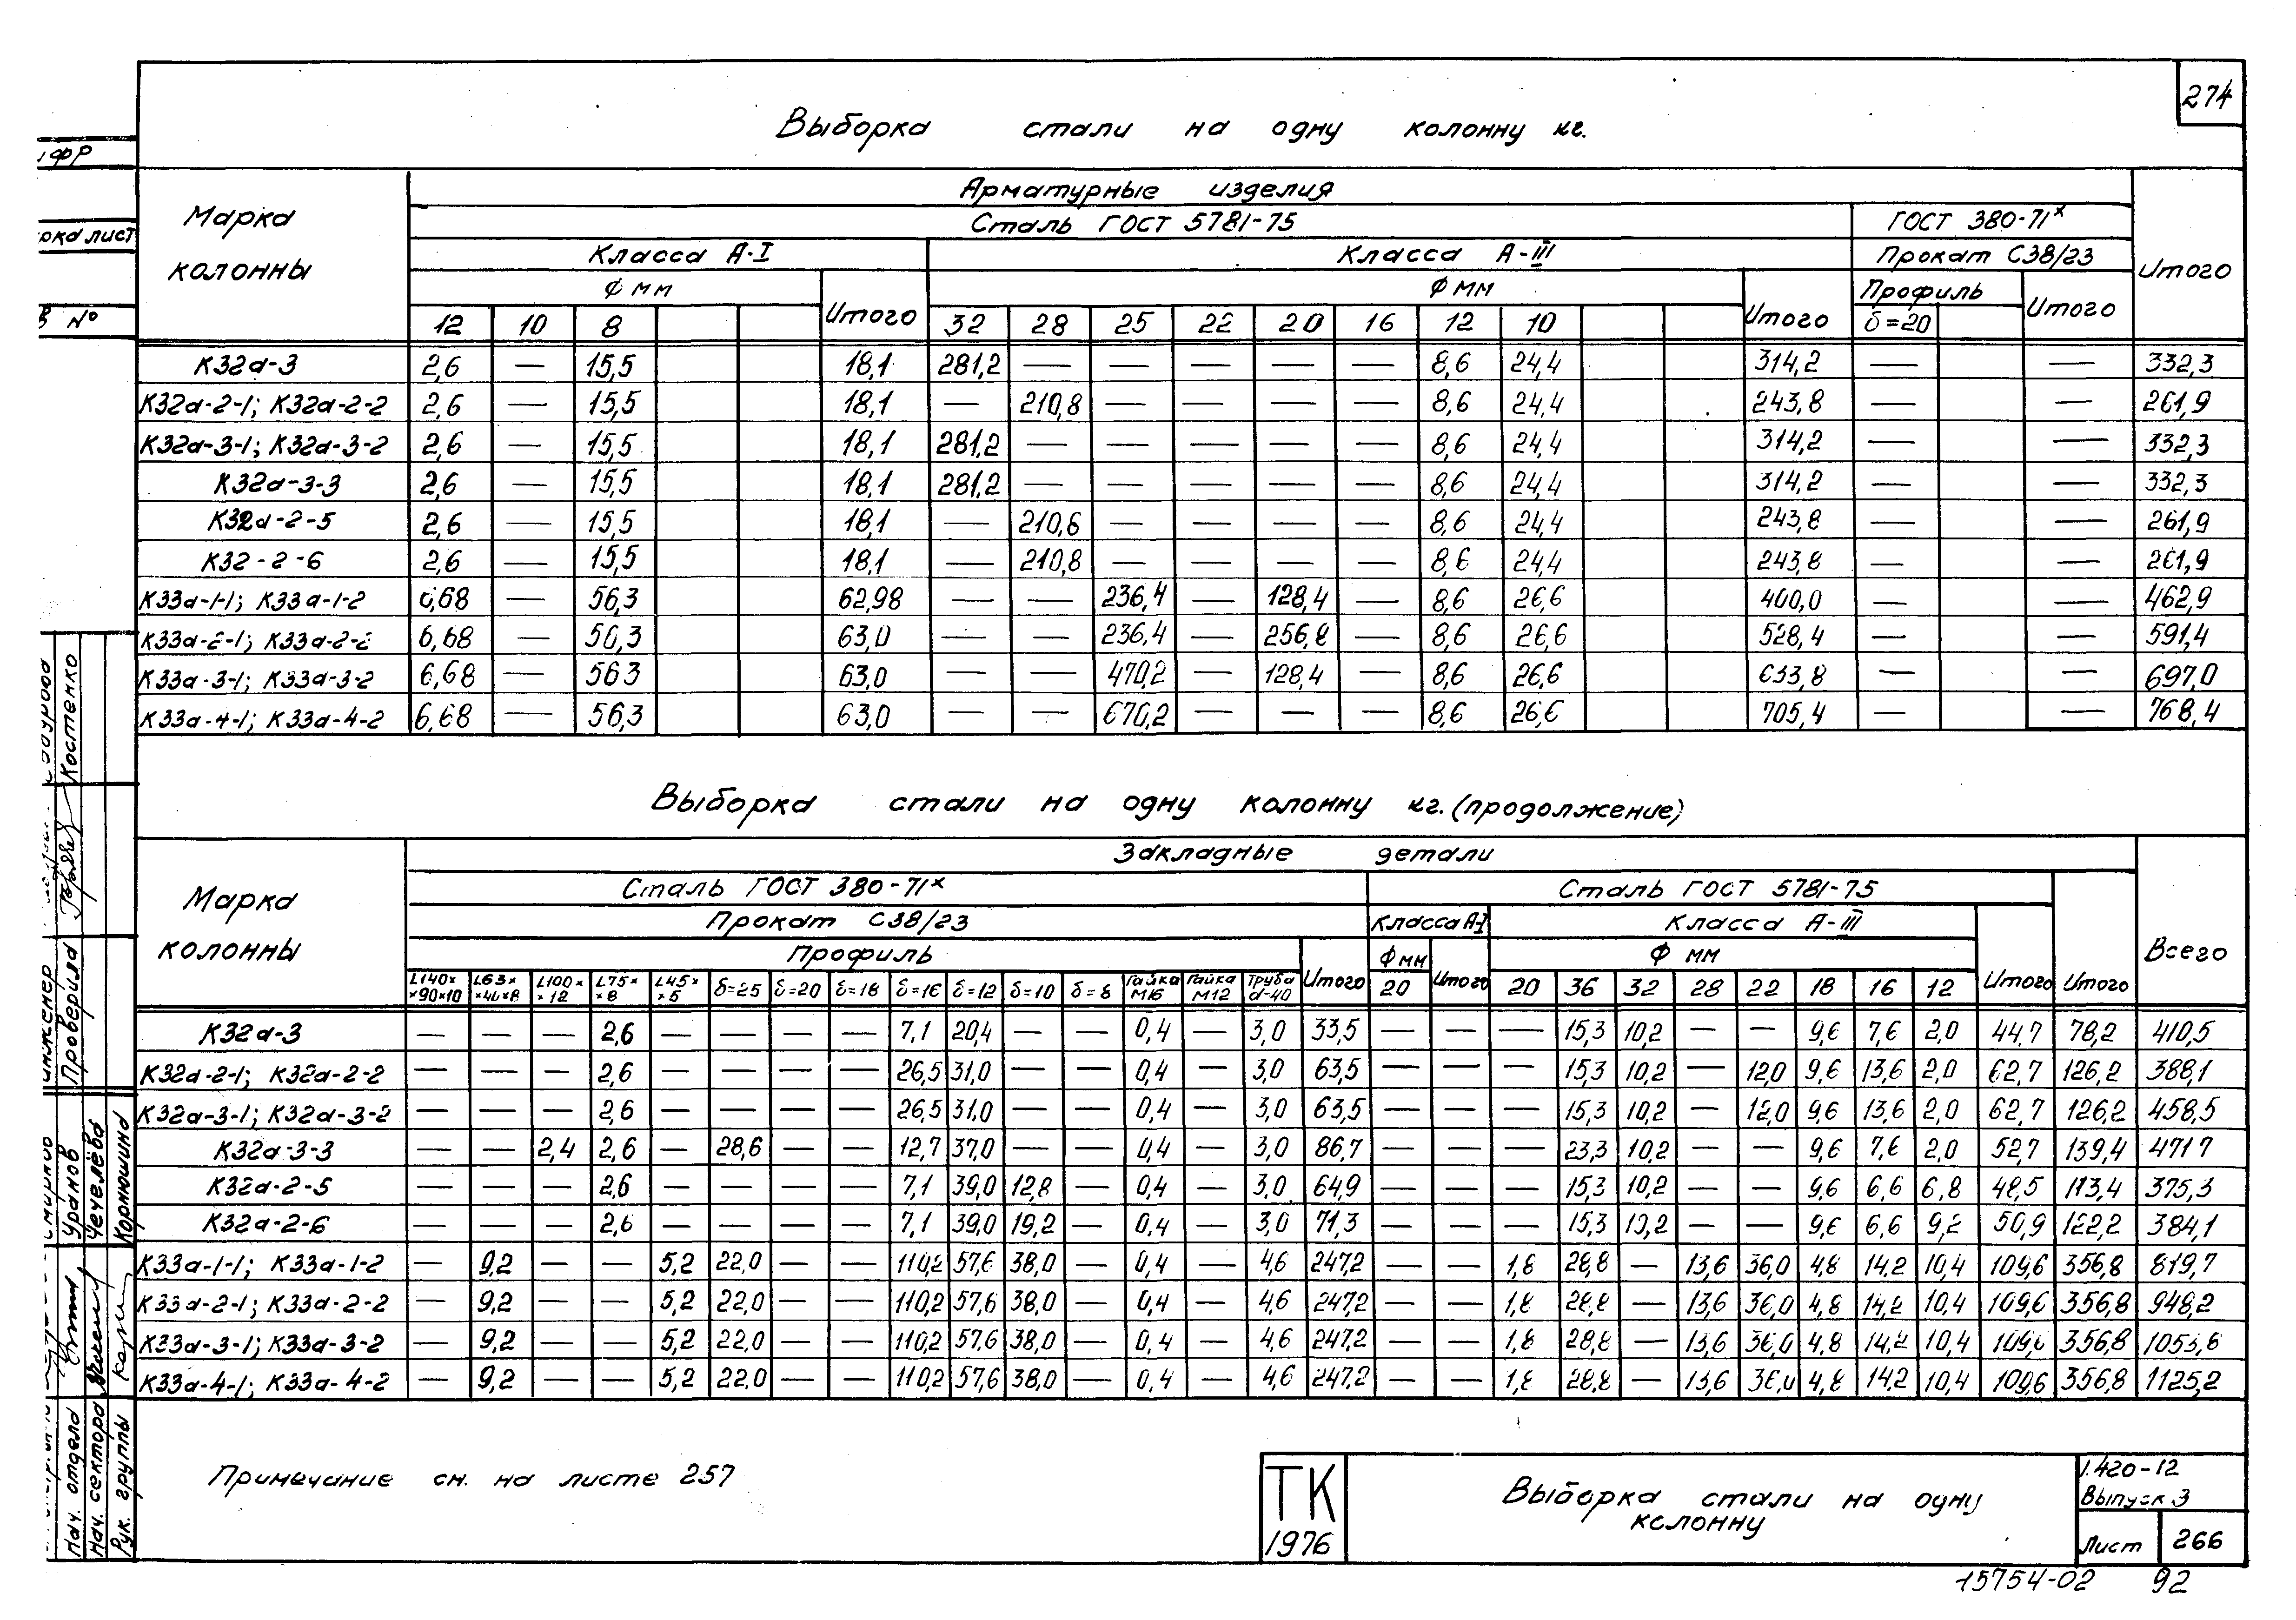 274
Выборка стали на одну колонну кг.
Марка колонны
Арматурные изделия
Итого
Сталь ГОСТ 5781-75
ГОСТ 380-71ˣ
Класса А-I
Класса А-III
Прокат С38/23
Ф мм
Итого
Ф мм
Итого
Профиль
Итого
12 10 8 32 28 25 22 20 16 12 10 δ=20
К32а-3 2,6 — 15,5 18,1 281,2 — — — — — 8,6 24,4 314,2 — — 332,3
К32а-2-1; К32а-2-2 2,6 — 15,5 18,1 — 210,8 — — — — 8,6 24,4 243,8 — — 261,9
К32а-3-1; К32а-3-2 2,6 — 15,5 18,1 281,2 — — — — — 8,6 24,4 314,2 — — 332,3
К32а-3-3 2,6 — 15,5 18,1 281,2 — — — — — 8,6 24,4 314,2 — — 332,3
К32а-2-5 2,6 — 15,5 18,1 — 210,6 — — — — 8,6 24,4 243,8 — — 261,9
К32-2-6 2,6 — 15,5 18,1 — 210,8 — — — — 8,6 24,4 243,8 — — 261,9
К33а-1-1; К33а-1-2 6,68 — 56,3 62,98 — — 236,4 — 128,4 — 8,6 26,6 400,0 — — 462,9
К33а-2-1; К33а-2-2 6,68 — 56,3 63,0 — — 236,4 — 256,8 — 8,6 26,6 528,4 — — 591,4
К33а-3-1; К33а-3-2 6,68 — 563 63,0 — — 470,2 — 128,4 — 8,6 26,6 633,8 — — 697,0
К33а-4-1; К33а-4-2 6,68 — 56,3 63,0 — — 670,2 — — — 8,6 26,6 705,4 — — 768,4
Выборка стали на одну колонну кг. (продолжение)
Марка колонны
Закладные детали
Всего
Сталь ГОСТ 380-71ˣ
Сталь ГОСТ 5781-75
Итого
Прокат С38/23
Класса А-I
Класса А-III
Итого
Профиль
Итого
Ф мм
Итого
Ф мм
L140××90×10 L63××40×8 L100××12 L75××8 L45××5 δ=25 δ=20 δ=18 δ=16 δ=12 δ=10 δ=8 Гайка М16 Гайка М12 Труба d-40 20 20 36 32 28 22 18 16 12
К32а-3 — — — 2,6 — — — — 7,1 20,4 — — 0,4 — 3,0 33,5 — — — 15,3 10,2 — — 9,6 7,6 2,0 44,7 78,2 410,5
К32а-2-1; К32а-2-2 — — — 2,6 — — — — 26,5 31,0 — — 0,4 — 3,0 63,5 — — — 15,3 10,2 — 12,0 9,6 13,6 2,0 62,7 126,2 388,1
К32а-3-1; К32а-3-2 — — — 2,6 — — — — 26,5 31,0 — — 0,4 — 3,0 63,5 — — — 15,3 10,2 — 12,0 9,6 13,6 2,0 62,7 126,2 458,5
К32а-3-3 — — 2,4 2,6 — 28,6 — — 12,7 37,0 — — 0,4 — 3,0 86,7 — — — 23,3 10,2 — — 9,6 7,6 2,0 52,7 139,4 471,7
К32а-2-5 — — — 2,6 — — — — 7,1 39,0 12,8 — 0,4 — 3,0 64,9 — — — 15,3 10,2 — — 9,6 6,6 6,8 48,5 113,4 375,3
К32а-2-6 — — — 2,6 — — — — 7,1 39,0 19,2 — 0,4 — 3,0 71,3 — — — 15,3 10,2 — — 9,6 6,6 9,2 50,9 122,2 384,1
К33а-1-1; К33а-1-2 — 9,2 — — 5,2 22,0 — — 110,2 57,6 38,0 — 0,4 — 4,6 247,2 — — 1,8 28,8 — 13,6 36,0 4,8 14,2 10,4 109,6 356,8 819,7
К33а-2-1; К33а-2-2 — 9,2 — — 5,2 22,0 — — 110,2 57,6 38,0 — 0,4 — 4,6 247,2 — — 1,8 28,8 — 13,6 36,0 4,8 14,2 10,4 109,6 356,8 948,2
К33а-3-1; К33а-3-2 — 9,2 — — 5,2 22,0 — — 110,2 57,6 38,0 — 0,4 — 4,6 247,2 — — 1,8 28,8 — 13,6 36,0 4,8 14,2 10,4 109,6 356,8 1053,6
К33а-4-1; К33а-4-2 — 9,2 — — 5,2 22,0 — — 110,2 57,6 38,0 — 0,4 — 4,6 247,2 — — 1,8 28,8 — 13,6 36,0 4,8 14,2 10,4 109,6 356,8 1125,2
Примечание см. на листе 257
ТК
1976
Выборка стали на одну
колонну
1.420-12
Выпуск 3
Лист 266
15754-02 92
инженер
Проверила
Костенко
Нач. отдела
Уранов
Нач. сектора
Чечелёва
Рук. группы
Корнюшина